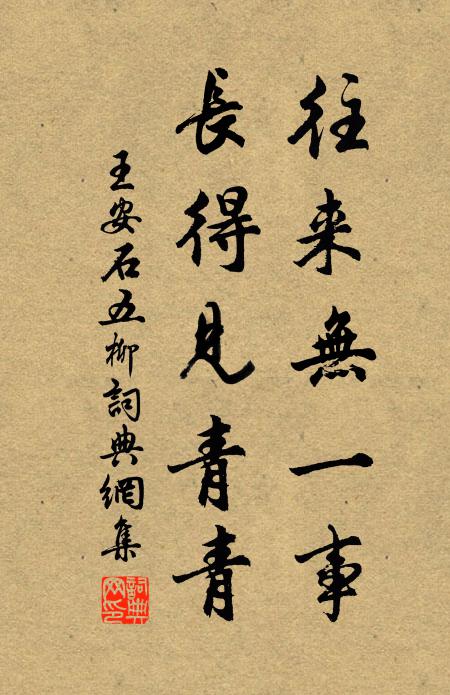 往来無一事
長得見青青
王安石五柳詞典網集
詞典网印